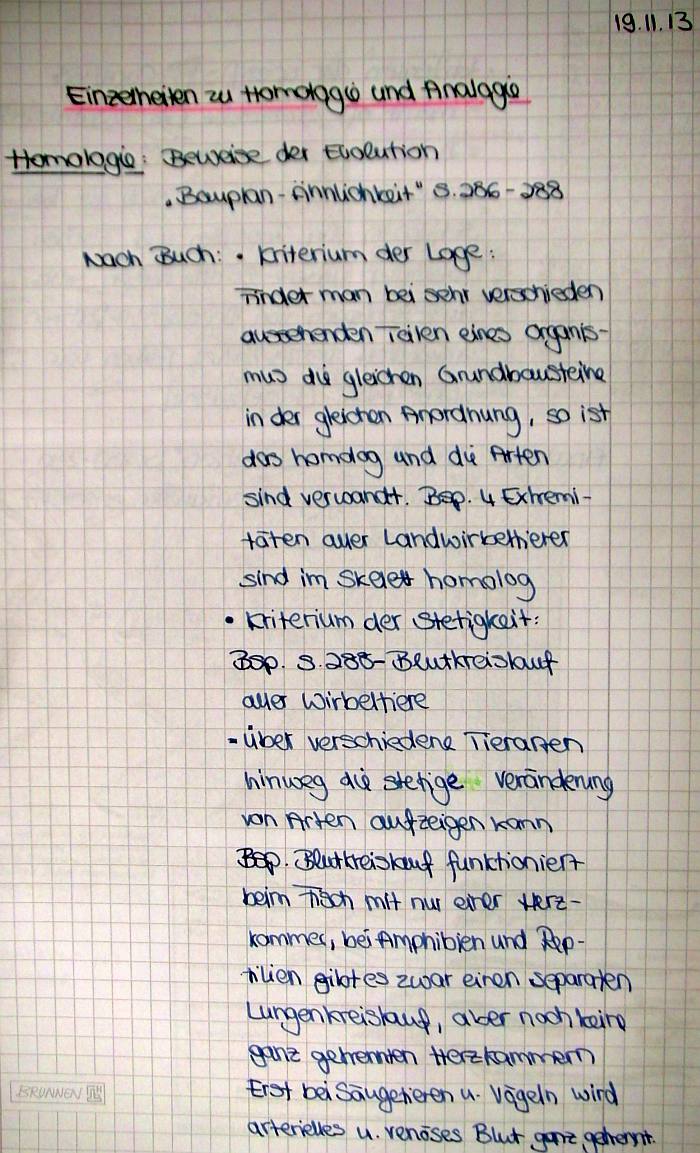 19.11.13
Einzelheiten zu Homologie und Analogie
Homologie: Beweise der Evolution
„Bauplan-Ähnlichkeit" S.286-288
Nach Buch: • Kriterium der Lage:
Findet man bei sehr verschieden
aussehenden Teilen eines Organis-
mus die gleichen Grundbausteine
in der gleichen Anordnung, so ist
das homolog und die Arten
sind verwandt. Bsp. 4 Extremi-
täten aller Landwirbeltierer
sind im Skelett homolog
• Kriterium der Stetigkeit:
Bsp. S.288-Blutkreislauf
aller Wirbeltiere
-über verschiedene Tierarten
hinweg die stetige Veränderung
von Arten aufzeigen kann
Bsp. Blutkreislauf funktioniert
beim Fisch mit nur einer Herz-
kammer, bei Amphibien und Rep-
tilien gibt es zwar einen separaten
Lungenkreislauf, aber noch keine
ganz getrennten Herzkammern
Erst bei Säugetieren u. Vögeln wird
arterielles u. venöses Blut ganz getrennt.
BRUNNEN